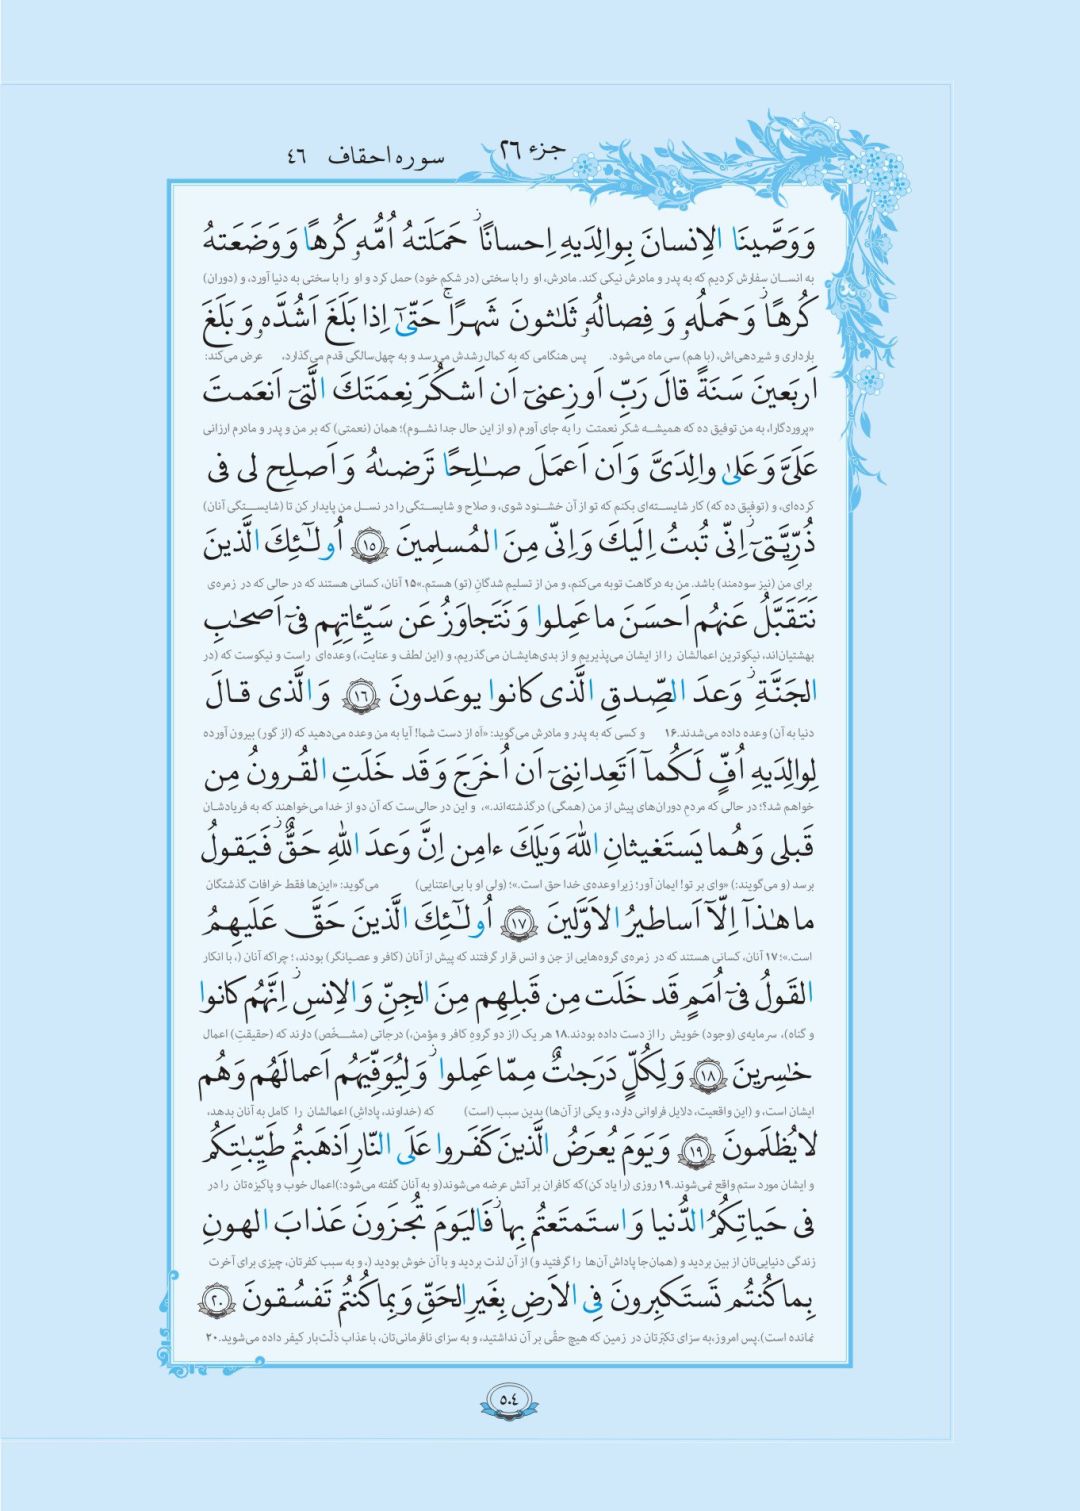 جزء ۲۶
سوره احقاف ٤٦
وَوَصَّينَا الاِنسانَ بِوالِدَيهِ اِحسانًا ۖ حَمَلَتهُ اُمُّهُ كُرهًا وَوَضَعَتهُ
به انسان سفارش کردیم که به پدر و مادرش نیکی کند. مادرش، او را با سختی (در شکم خود) حمل کرد و او را با سختی به دنیا آورد، و (دوران)
كُرهًا ۖ وَحَملُهُ وَ فِصالُهُ ثَلاثونَ شَهرًا ۚ حَتّىٰ اِذا بَلَغَ اَشُدَّهُ وَ بَلَغَ
بارداری و شیردهی‌اش، (با هم) سی ماه می‌شود. پس هنگامی که به کمال رشدش می‌رسد و به چهل‌سالگی قدم می‌گذارد، عرض می‌کند:
اَربَعينَ سَنَةً قالَ رَبِّ اَوزِعنى اَن اَشكُرَ نِعمَتَكَ الَّتى اَنعَمتَ
«پروردگارا، به من توفیق ده که همیشه شکر نعمتت را به جای آورم (و از این حال جدا نشوم)؛ همان (نعمتی) که بر من و پدر و مادرم ارزانی
عَلَىَّ وَ عَلىٰ والِدَىَّ وَ اَن اَعمَلَ صالِحًا تَرضىٰهُ وَ اَصلِح لى فى
کرده‌ای، و (توفیق ده که) کار شایسته‌ای بکنم که تو از آن خشنود شوی، و صلاح و شایستگی را در نسل من پایدار کن تا (شایستگی آنان)
ذُرِّيَّتى ۖ اِنّى تُبتُ اِلَيكَ وَ اِنّى مِنَ المُسلِمينَ ١٥ اُولٰئِكَ الَّذينَ
برای من (نیز سودمند) باشد. من به درگاهت توبه می‌کنم، و من از تسلیم شدگان (تو) هستم.»۱۵ آنان، کسانی هستند که در حالی که در زمره‌ی
نَتَقَبَّلُ عَنهُم اَحسَنَ ما عَمِلوا وَ نَتَجاوَزُ عَن سَيِّئاتِهِم فى اَصحٰبِ
بهشتیان‌اند، نیکوترین اعمالشان را از ایشان می‌پذیریم و از بدی‌هایشان می‌گذریم، و (این لطف و عنایت،) وعده‌ای راست و نیکوست که (در
الجَنَّةِ ۖ وَعدَ الصِّدقِ الَّذى كانوا يوعَدونَ ١٦ وَ الَّذى قالَ
دنیا به آن) وعده داده می‌شدند.۱۶ و کسی که به پدر و مادرش می‌گوید: «آه از دست شما! آیا به من وعده می‌دهید که (از گور) بیرون آورده
لِوالِدَيهِ اُفٍّ لَكُما اَتَعِدانِنى اَن اُخرَجَ وَ قَد خَلَتِ القُرونُ مِن
خواهم شد؟؛ در حالی که مردم دوران‌های پیش از من (همگی) درگذشته‌اند.»، و این در حالی‌ست که آن دو از خدا می‌خواهند که به فریادشان
قَبلى وَ هُما يَستَغيثانِ اللّٰهَ وَيلَكَ ءامِن اِنَّ وَعدَ اللّٰهِ حَقٌّ ۖ فَيَقولُ
برسد (و می‌گویند:) «وای بر تو! ایمان آور؛ زیرا وعده‌ی خدا حق است.»؛ (ولی او با بی‌اعتنایی) می‌گوید: «این‌ها فقط خرافات گذشتگان
ما هٰذا اِلّا اَساطيرُ الاَوَّلينَ ١٧ اُولٰئِكَ الَّذينَ حَقَّ عَلَيهِمُ
است.»؛۱۷ آنان، کسانی هستند که در زمره‌ی گروه‌هایی از جن و انس قرار گرفتند که پیش از آنان (کافر و عصیانگر) بودند.؛ چراکه آنان (، با انکار
القَولُ فى اُمَمٍ قَد خَلَت مِن قَبلِهِم مِنَ الجِنِّ وَ الاِنسِ ۖ اِنَّهُم كانوا
و گناه)، سرمایه‌ی (وجود) خویش را از دست داده بودند.۱۸ هر یک (از دو گروه کافر و مؤمن،) درجاتی (مشخّص) دارند که (حقیقتِ) اعمال
خٰسِرينَ ١٨ وَ لِكُلٍّ دَرَجٰتٌ مِمّا عَمِلوا ۖ وَ لِيُوَفِّيَهُم اَعمالَهُم وَ هُم
ایشان است، و (این واقعیت، دلایل فراوانی دارد، و یکی از آن‌ها) بدین سبب (است) که (خداوند، پاداشِ) اعمالشان را کامل به آنان بدهد،
لا يُظلَمونَ ١٩ وَ يَومَ يُعرَضُ الَّذينَ كَفَروا عَلَى النّارِ اَذهَبتُم طَيِّبٰتِكُم
و ایشان مورد ستم واقع نمی‌شوند.۱۹ روزی (را یاد کن)که کافران بر آتش عرضه می‌شوند(و به آنان گفته می‌شود:)اعمال خوب و پاکیزه‌تان را در
فى حَياتِكُمُ الدُّنيا وَ استَمتَعتُم بِها ۖ فَاليَومَ تُجزَونَ عَذابَ الهونِ
زندگی دنیایی‌تان از بین بردید و (همان‌جا پاداش آن‌ها را گرفتید و) از آن لذت بردید و با آن خوش بودید (، و به سبب کفرتان، چیزی برای آخرت
بِما كُنتُم تَستَكبِرونَ فِى الاَرضِ بِغَيرِ الحَقِّ وَ بِما كُنتُم تَفسُقونَ ٢٠
نمانده است).پس امروز،به سزای تکبّرتان در زمین که هیچ حقّی بر آن نداشتید، و به سزای نافرمانی‌تان، با عذاب ذلّت‌بار کیفر داده می‌شوید.۲۰
٥٠٤